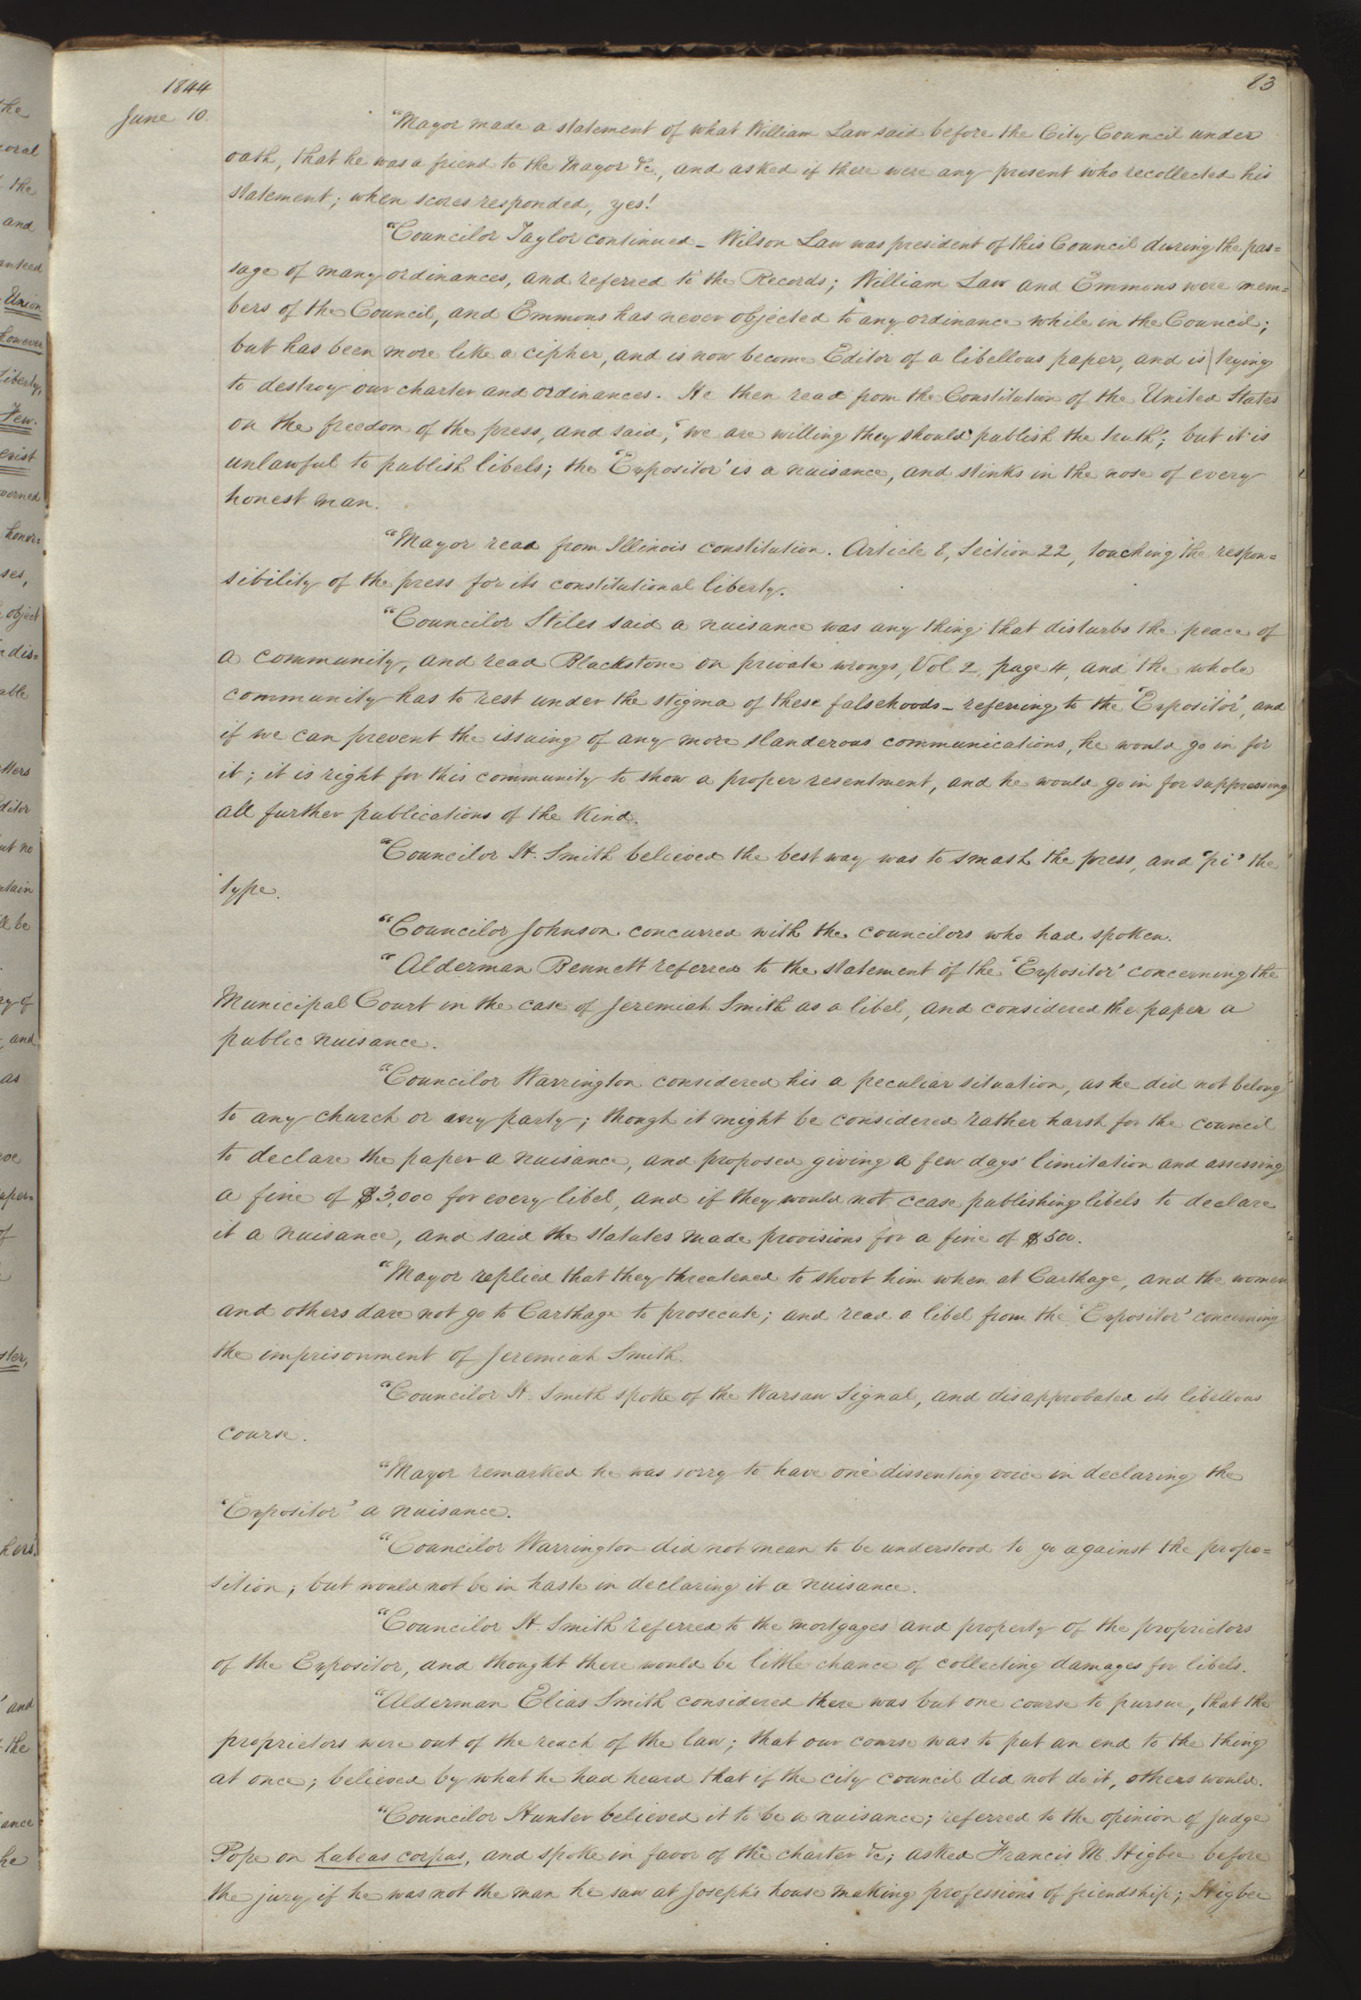 1844
June 10.
83
"Mayor made a statement of what William Law said before the City Council under
oath, that he was a friend to the Mayor &c, and asked if there were any present who recollected his
statement; when scores responded, yes!
"Councilor Taylor continued – Wilson Law was president of this Council during the pas=
sage of many ordinances, and referred to the Records; William Law and Emmons were mem=
bers of the Council, and Emmons has never objected to any ordinance while in the Council;
but has been more like a cipher, and is now become Editor of a libellous paper, and is trying
to destroy our charter and ordinances. He then read from the Constitution of the United States
on the freedom of the press, and said, "we are willing they should publish the truth; but it is
unlawful to publish libels; the 'Expositor' is a nuisance, and stinks in the nose of every
honest man.
"Mayor read from Illinois constitution. Article 8, Section 22, touching the respon=
sibility of the press for its constitutional liberty.
"Councilor Stiles said a nuisance was any thing that disturbs the peace of
a community, and read Blackstone on private wrongs, Vol 2, page 4, and the whole
community has to rest under the stigma of these falsehoods – referring to the 'Expositor', and
if we can prevent the issuing of any more slanderous communications, he would go in for
it; it is right for this community to show a proper resentment, and he would go in for suppressing
all further publications of the kind.
"Councilor H. Smith believed the best way was to smash the press, and 'pi' the
type.
"Councilor Johnson concurred with the councilors who had spoken.
"Alderman Bennett referred to the statement of the 'Expositor' concerning the
Municipal Court in the case of Jeremiah Smith as a libel, and considered the paper a
public nuisance.
"Councilor Warrington considered his a peculiar situation, as he did not belong
to any church or any party; though it might be considered rather harsh for the council
to declare the paper a nuisance, and proposed giving a few days' limitation and assessing
a fine of $3,000 for every libel, and if they would not cease publishing libels to declare
it a nuisance, and said the statutes made provisions for a fine of $500.
"Mayor replied that they threatened to shoot him when at Carthage, and the women
and others dare not go to Carthage to prosecute; and read a libel from the 'Expositor' concerning
the imprisonment of Jeremiah Smith.
"Councilor H. Smith spoke of the Warsaw Signal, and disapprobated its libellous
course.
"Mayor remarked he was sorry to have one dissenting voice in declaring the
'Expositor' a nuisance.
"Councilor Warrington did not mean to be understood to go against the propo=
sition; but would not be in haste in declaring it a nuisance.
"Councilor H. Smith referred to the mortgages and property of the proprietors
of the Expositor, and thought there would be little chance of collecting damages for libels.
"Alderman Elias Smith considered there was but one course to pursue, that the
proprietors were out of the reach of the law; that our course was to put an end to the thing
at once; believed by what he had heard that if the city council did not do it, others would.
"Councilor Hunter believed it to be a nuisance; referred to the opinion of Judge
Pope on habeas corpus, and spoke in favor of the charter &c; asked Francis M. Higbee before
the jury if he was not the man he saw at Joseph's house making professions of friendship; Higbee